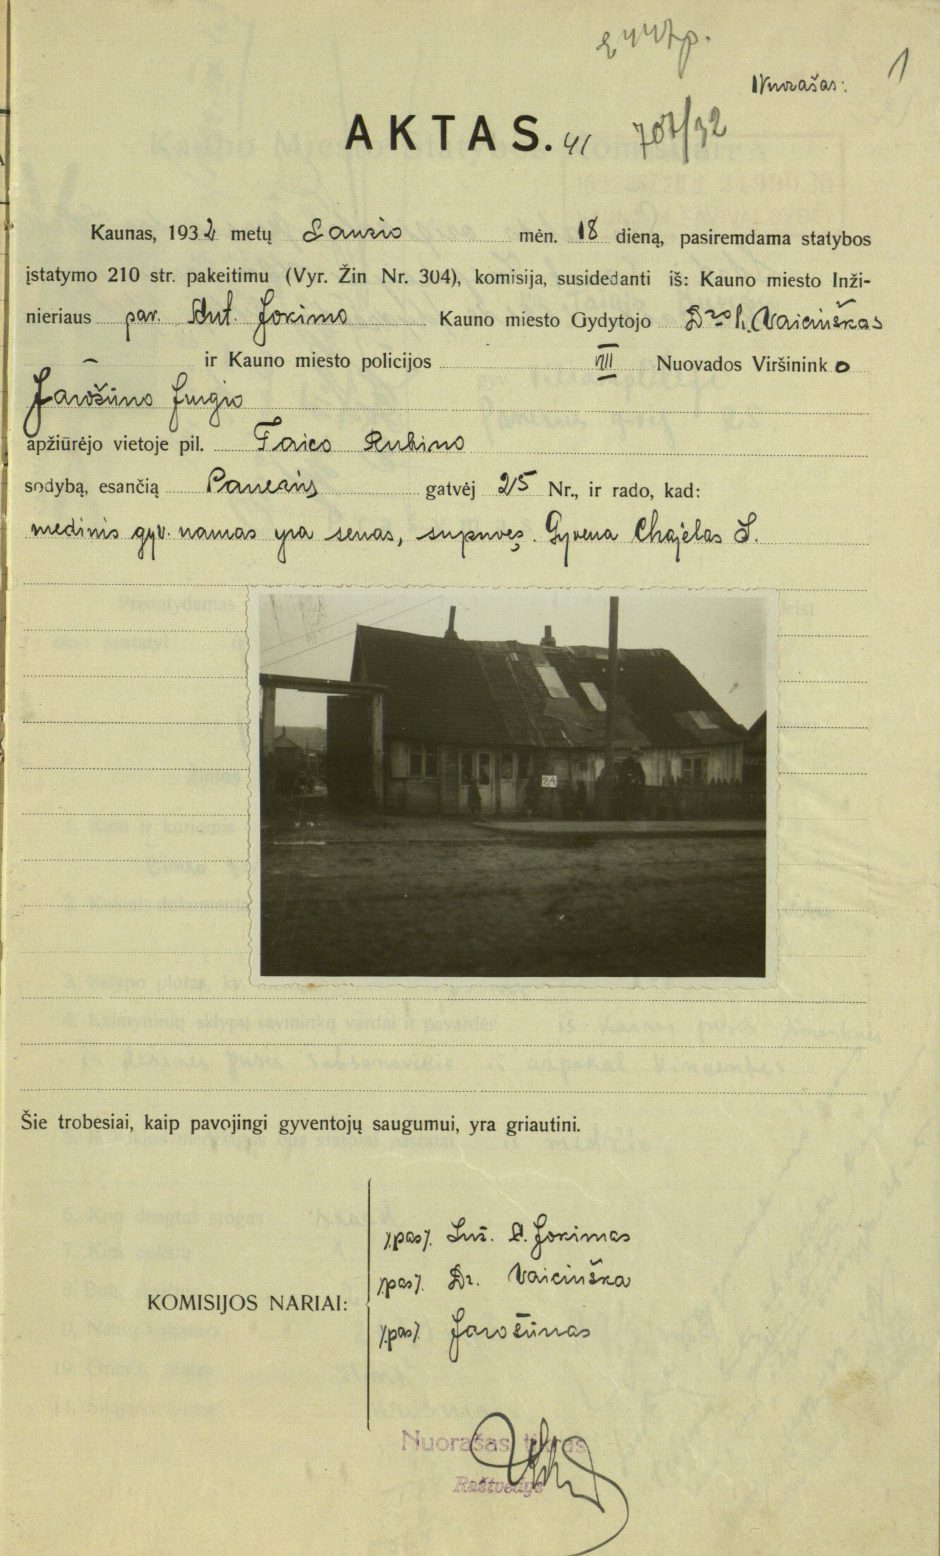 Nuorašas:
1
AKTAS. 41 707/32
Kaunas, 1932 metų Sausio mėn. 18 dieną, pasiremdama statybos
įstatymo 210 str. pakeitimu (Vyr. Žin Nr. 304), komisija, susidedanti iš: Kauno miesto Inži-
nieriaus par. Ant. Jokimo Kauno miesto Gydytojo D-ro h. Vaiciuškas
– ir Kauno miesto policijos VIII Nuovados Viršininko
Jarošūno Jurgio
apžiūrėjo vietoje pil. Faico Rubino
sodybą, esančią Panerių gatvėj 25 Nr., ir rado, kad:
medinis gyv. namas yra senas, supuvęs. Gyvena Chajelas Š.
Šie trobesiai, kaip pavojingi gyventojų saugumui, yra griautini.
KOMISIJOS NARIAI:
/pas/. Inž. A. Jokimas
/pas/. Dr. Vaiciuška
/pas/. Jarošūnas
Nuorašas tikras
Raštvedys